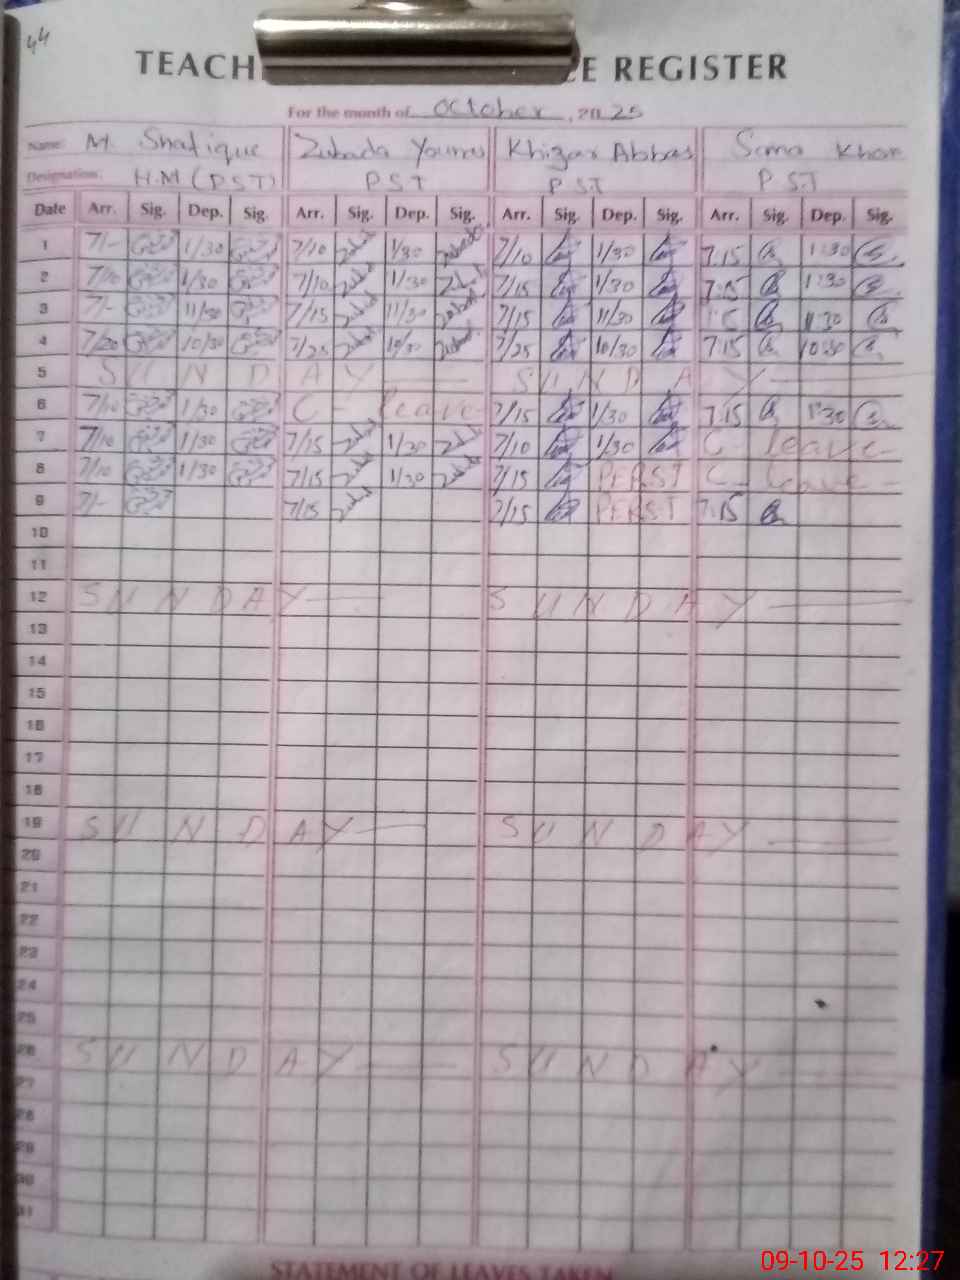 44
TEACH CE REGISTER
For the month of October, 20 25
Name: M. Shafique Zubada Younus Khizar Abbas Sama Khan
Designation: H.M (PST) PST PST PST
Date Arr. Sig. Dep. Sig. Arr. Sig. Dep. Sig. Arr. Sig. Dep. Sig. Arr. Sig. Dep. Sig.
1 7/- 1/30 7/10 1/30 7/10 1/30 7.15 1:30
2 7/10 1/30 7/10 1/30 7/15 1/30 7:15 1:30
3 7/- 11/30 7/15 11/30 7/15 11/30 11:30
4 7/20 10/30 7/25 10/30 7/25 10/30 7:15 10:30
5 SUNDAY SUNDAY
6 7/10 1/30 C- leave- 7/15 1/30 7.15 1:30
7 7/10 1/30 7/15 1/30 7/10 1/30 C- leave-
8 7/10 1/30 7/15 1/30 7/15 PERST C- leave-
9 7/- 7/15 7/15 PERST 7:15
10
11
12 SUNDAY SUNDAY
13
14
15
16
17
18
19 SUNDAY SUNDAY
20
21
22
23
24
25
26 SUNDAY SUNDAY
27
28
29
30
31
STATEMENT OF LEAVES TAKEN
09-10-25 12:27